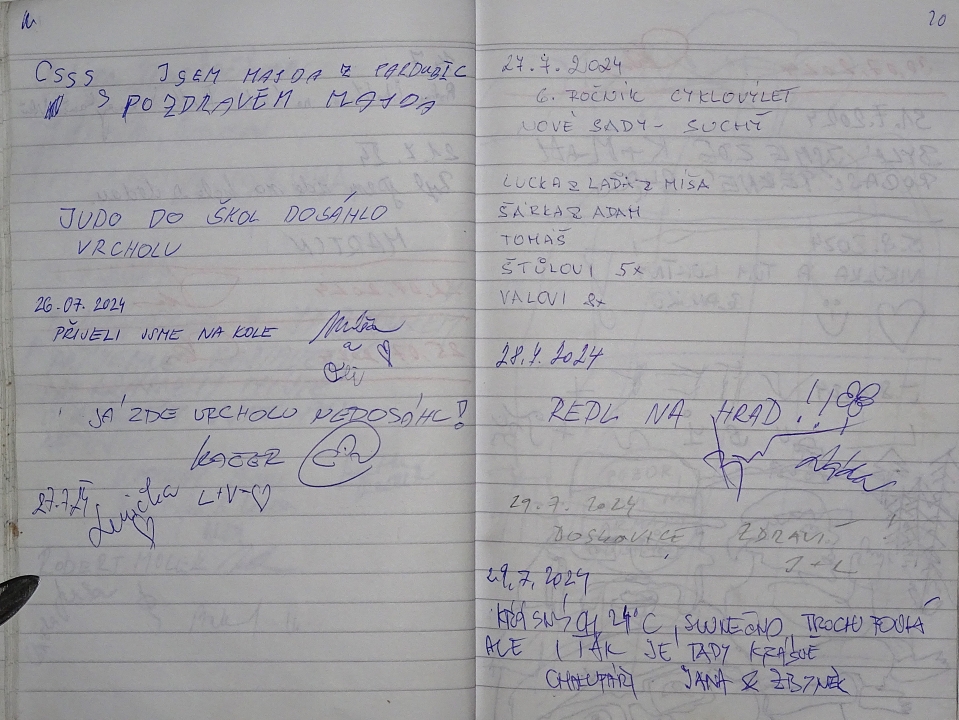 Csss JSEM MAJDA Z PARDUBIC
S POZDRAVEM MAJDA
JUDO DO ŠKOL DOSÁHLO
VRCHOLU
26.07.2024
PŘIJELI JSME NA KOLE Míša
a
JÁ ZDE VRCHOLU NEDOSÁHL!
KACER
27.7.24 Lenička L+V=♡
20
27.7.2024
6. ROČNÍK CYKLOVÝLET
NOVÉ SADY - SUCHÝ
LUCKA & LAĎA & MÍŠA
ŠÁRKA & ADAM
TOMÁŠ
ŠTŮLOVI 5x
VALOVI 8x
28.7.2024
REDL NA HRAD!!
29.7.2024
BOSKOVICE ZDRAVÍ!
J + L
29.7.2024
KRÁSNÝCH 24°C, SLUNEČNO, TROCHU FOUKÁ
ALE I TAK JE TADY KRÁSNĚ
CHALUPÁŘI JANA & ZBYNĚK